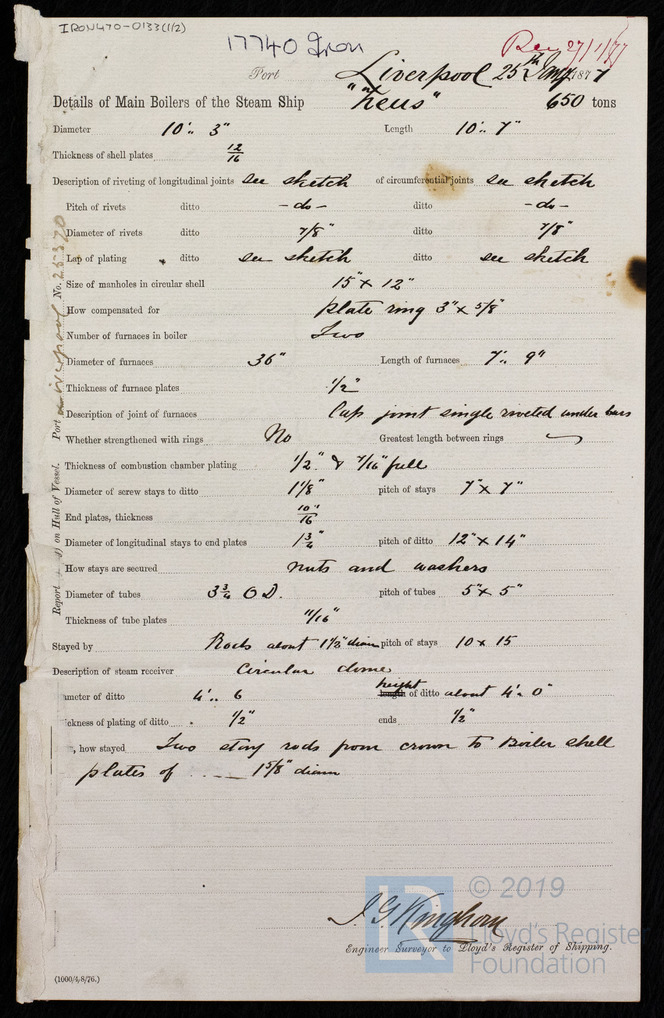 IRON470-0133(1/2)
17740 Iron
Rec 27/1/77
Port Liverpool 25th Jany 1877
Details of Main Boilers of the Steam Ship "Zeus" 650 tons
Diameter 10'.. 3" Length 10'.. 7"
Thickness of shell plates 12/16
Description of riveting of longitudinal joints see sketch of circumferential joints see sketch
Pitch of rivets ditto - do - ditto - do -
Diameter of rivets ditto 7/8" ditto 7/8"
Lap of plating ditto see sketch ditto see sketch
Size of manholes in circular shell 15" x 12"
How compensated for plate ring 3" x 5/8"
Number of furnaces in boiler Two
Diameter of furnaces 36" Length of furnaces 7'.. 9"
Thickness of furnace plates 1/2"
Description of joint of furnaces Lap joint single riveted under bars
Whether strengthened with rings No Greatest length between rings
Thickness of combustion chamber plating 1/2" & 7/16" full
Diameter of screw stays to ditto 1 1/8" pitch of stays 7" x 7"
End plates, thickness 10"/16
Diameter of longitudinal stays to end plates 1 3/4" pitch of ditto 12" x 14"
How stays are secured nuts and washers
Diameter of tubes 3 3/4 O D. pitch of tubes 5" x 5"
Thickness of tube plates 11/16"
Stayed by Rods about 1 1/2" diam pitch of stays 10 x 15
Description of steam receiver Circular dome
ameter of ditto 4'.. 6 height length of ditto about 4'.. 0"
ickness of plating of ditto 1/2" ends 1/2"
, how stayed Two stay rods from crown to Boiler shell
plates of 1 5/8" diam
J G Kinghorn
Engineer Surveyor to Lloyd's Register of Shipping.
(1000/4/8/76.)
Report on Hull of Vessel. Port Liverpool No. 25370
© 2019
Lloyd's Register
Foundation
LR